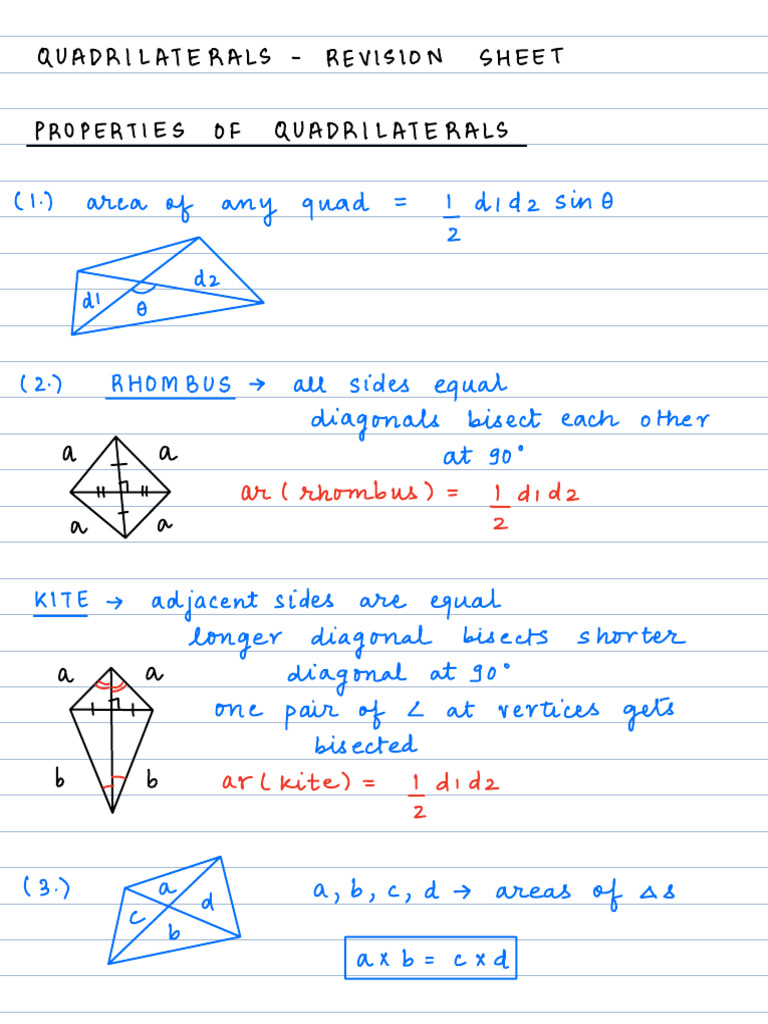 QUADRILATERALS - REVISION SHEET
PROPERTIES OF QUADRILATERALS
(1.) area of any quad = 1/2 d1 d2 sin θ
d1 d2
θ
(2.) RHOMBUS → all sides equal
diagonals bisect each other
at 90°
a a
a a
ar (rhombus) = 1/2 d1 d2
KITE → adjacent sides are equal
longer diagonal bisects shorter
diagonal at 90°
a a
one pair of ∠ at vertices gets
bisected
b b
ar (kite) = 1/2 d1 d2
(3.) a, b, c, d → areas of △s
a
c d
b
a × b = c × d